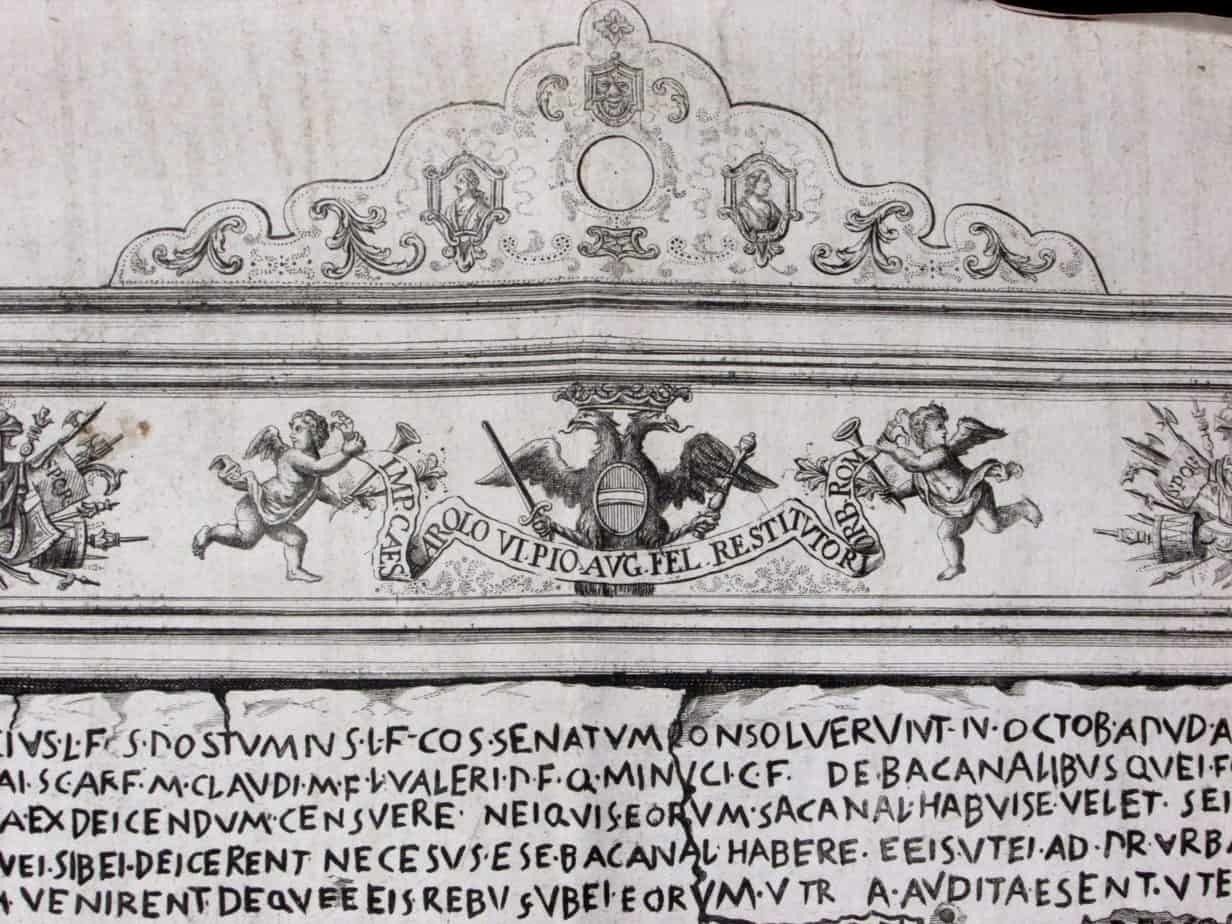 IMP CAES AROLO VI.PIO.AVG.FEL.RESTITVTORI ORB ROM
CIVS·L·F S·POSTVMNS·L·F·COS·SENATVM CONSOLVERVNT·N·OCTOB·APVD·A
AI·SC·ARF·M·CLAVDI·M·F·L·VALERI·P·F·Q·MINVCI·C·F· DE·BACANALIBVS QVEI·F
A·EXDEICENDVM·CENSVERE· NEIQVIS·EORVM·SACANAL·HABVISE·VELET· SEI
VEI·SIBEI·DEICERENT NECESVS·ESE·BACANAL HABERE· EEIS·VTEI·AD·PR·VRBA
A·VENIRENT·DEQVEEEIS·REBVS VBEI·EORVM·VTR A·AVDITAESENT·VTE